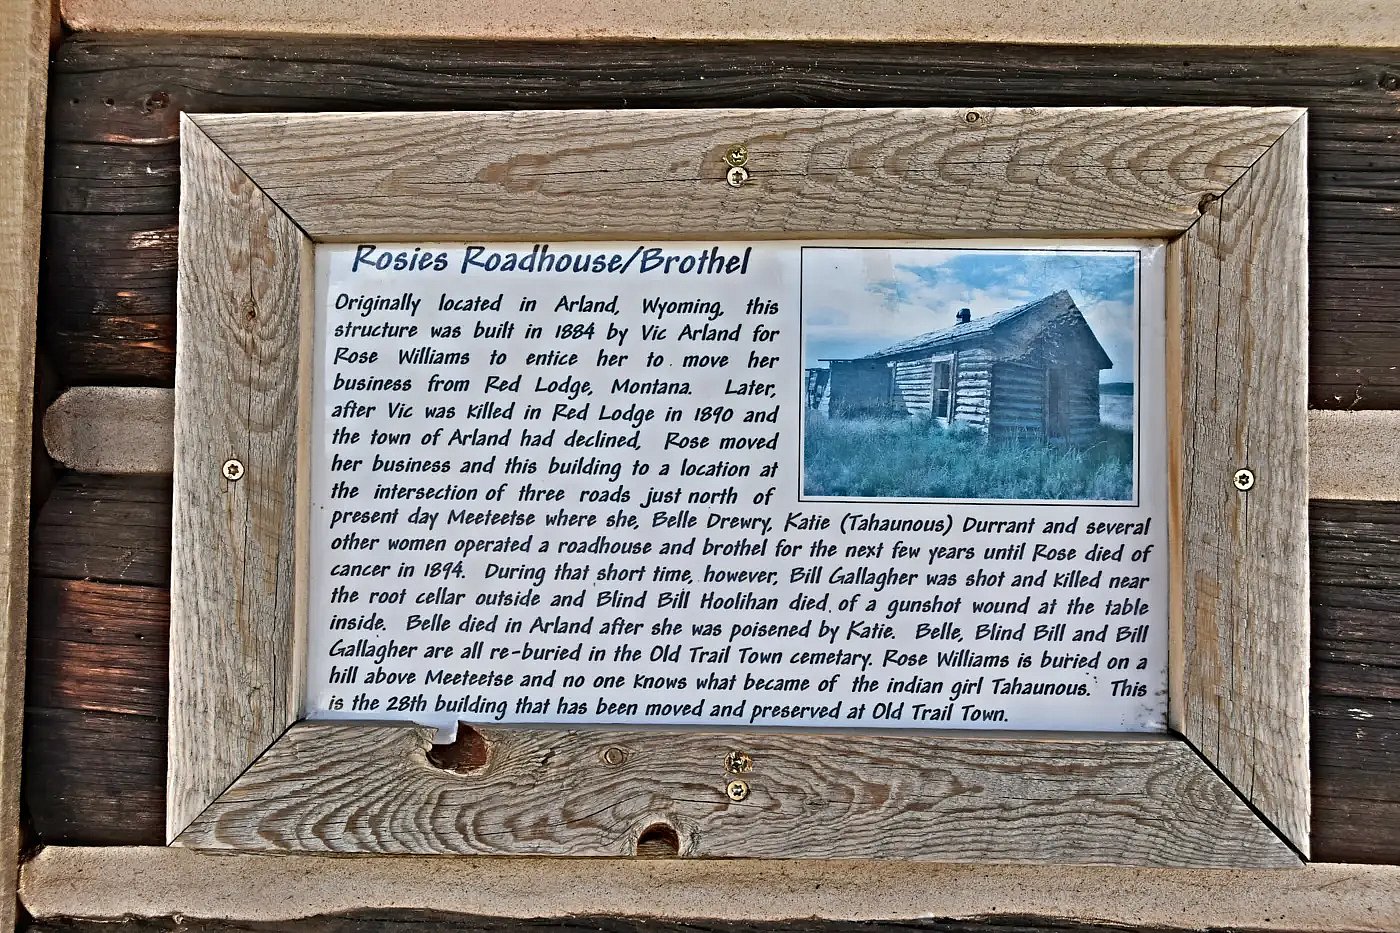 Rosies Roadhouse/Brothel
Originally located in Arland, Wyoming, this
structure was built in 1884 by Vic Arland for
Rose Williams to entice her to move her
business from Red Lodge, Montana. Later,
after Vic was killed in Red Lodge in 1890 and
the town of Arland had declined, Rose moved
her business and this building to a location at
the intersection of three roads just north of
present day Meeteetse where she, Belle Drewry, Katie (Tahaunous) Durrant and several
other women operated a roadhouse and brothel for the next few years until Rose died of
cancer in 1894. During that short time, however, Bill Gallagher was shot and killed near
the root cellar outside and Blind Bill Hoolihan died of a gunshot wound at the table
inside. Belle died in Arland after she was poisened by Katie. Belle, Blind Bill and Bill
Gallagher are all re-buried in the Old Trail Town cemetary. Rose Williams is buried on a
hill above Meeteetse and no one knows what became of the indian girl Tahaunous. This
is the 28th building that has been moved and preserved at Old Trail Town.